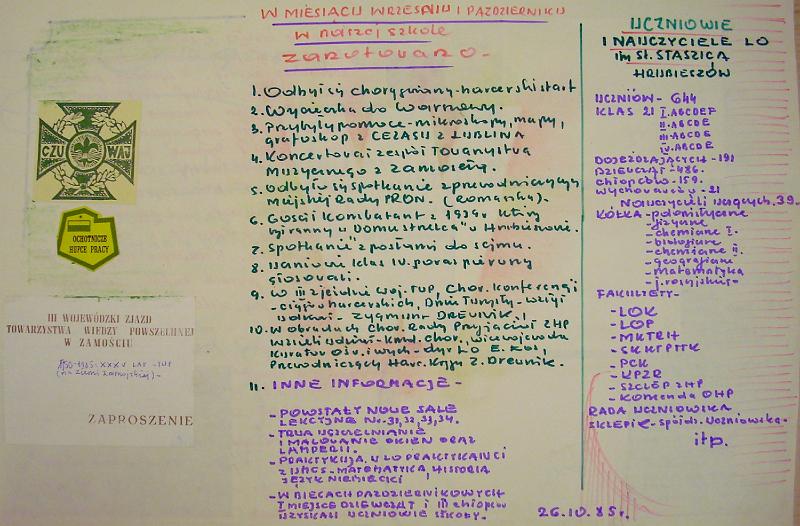 CZUWAJ
OCHOTNICZE
HUFCE PRACY
III WOJEWÓDZKI ZJAZD
TOWARZYSTWA WIEDZY POWSZECHNEJ
W ZAMOŚCIU
1950-1985: XXXV LAT - TWP
(na Ziemi Zamojskiej)-
ZAPROSZENIE
W MIESIĄCU WRZEŚNIU I PAŹDZIERNIKU
W naszej szkole
zanotowano-
1. Odbył się chorągwiany-harcerski start
2. Wycieczka do Warszawy.
3. Przybyły pomoce-mikroskopy, mapy,
grafoskop z CEZASU z LUBLINA
4. Koncertował zespół Towarzystwa
Muzycznego z Zamościa.
5. Odbyło się spotkanie z przewodniczącym
Miejskiej Rady PRON. (Romanka).
6. Gościł Kombatant z 1939r. który
był ranny u Domu strzelca" w Hrubieszowie.
7. Spotkanie z posłami do sejmu.
8. Uczniowie klas IV. po raz pierwszy
głosowali.
9. W III zjeździe Woj. TWP, Chor. Konferencji
-ciągów harcerskich, Dniu Turysty- wzięli
udział - Zygmunt DREWNIK,
10. W obradach Chor. Rady Przyjaciół ZHP
Wzięli udział-kmd. chor., wicewojewoda
Kurator Ośw. i wych- dyr LO E. Kos,
Przewodniczący Harc. Kręgu Z. Drewnik.
11. INNE INFORMACJE -
- POWSTAŁY NOWE SALE
LEKCYJNE Nr. 31, 32, 33, 34.
- TRWA USZCZELNIANIE
I MALOWANIE OKIEN ORAZ
LAMPERII.
- PRAKTYKUJĄ W LO PRAKTYKANCI
Z UMCS - MATEMATYKA, HISTORIA
JĘZYK NIEMIECKI
- W BIEGACH PAŹDZIERNIKOWYCH
I MIEJSCE DZIEWCZĄT I III chłopców
UZYSKALI UCZNIOWIE SZKOŁY.
UCZNIOWIE
I NAUCZYCIELE LO
im ST. STASZICA
HRUBIESZÓW
UCZNIÓW - 644
KLAS 21 I. ABCDEF
II. ABCDE
III ABCDE
IV. ABCDE
DOJEŻDŻAJĄCYCH - 191
DZIEWCZĄT - 486.
chłopców - 159.
wychowawców - 21
Nauczycieli uczących. 39.
KÓŁKA - polonistyczne
- fizyczne
- chemiczne I.
- biologiczne
- chemiczne II.
- geograficzne
- matematyka
- j. rosyjskiego
FAKULTETY -
- LOK
- LOP
- MKTRH
- SKKFPTTK
- PCK
- KPZR
- SZCZEP ZHP
- Komenda OHP
RADA UCZNIOWSKA
SKLEPIK - spółdz. Uczniowska-
itp.
26.10.85r.